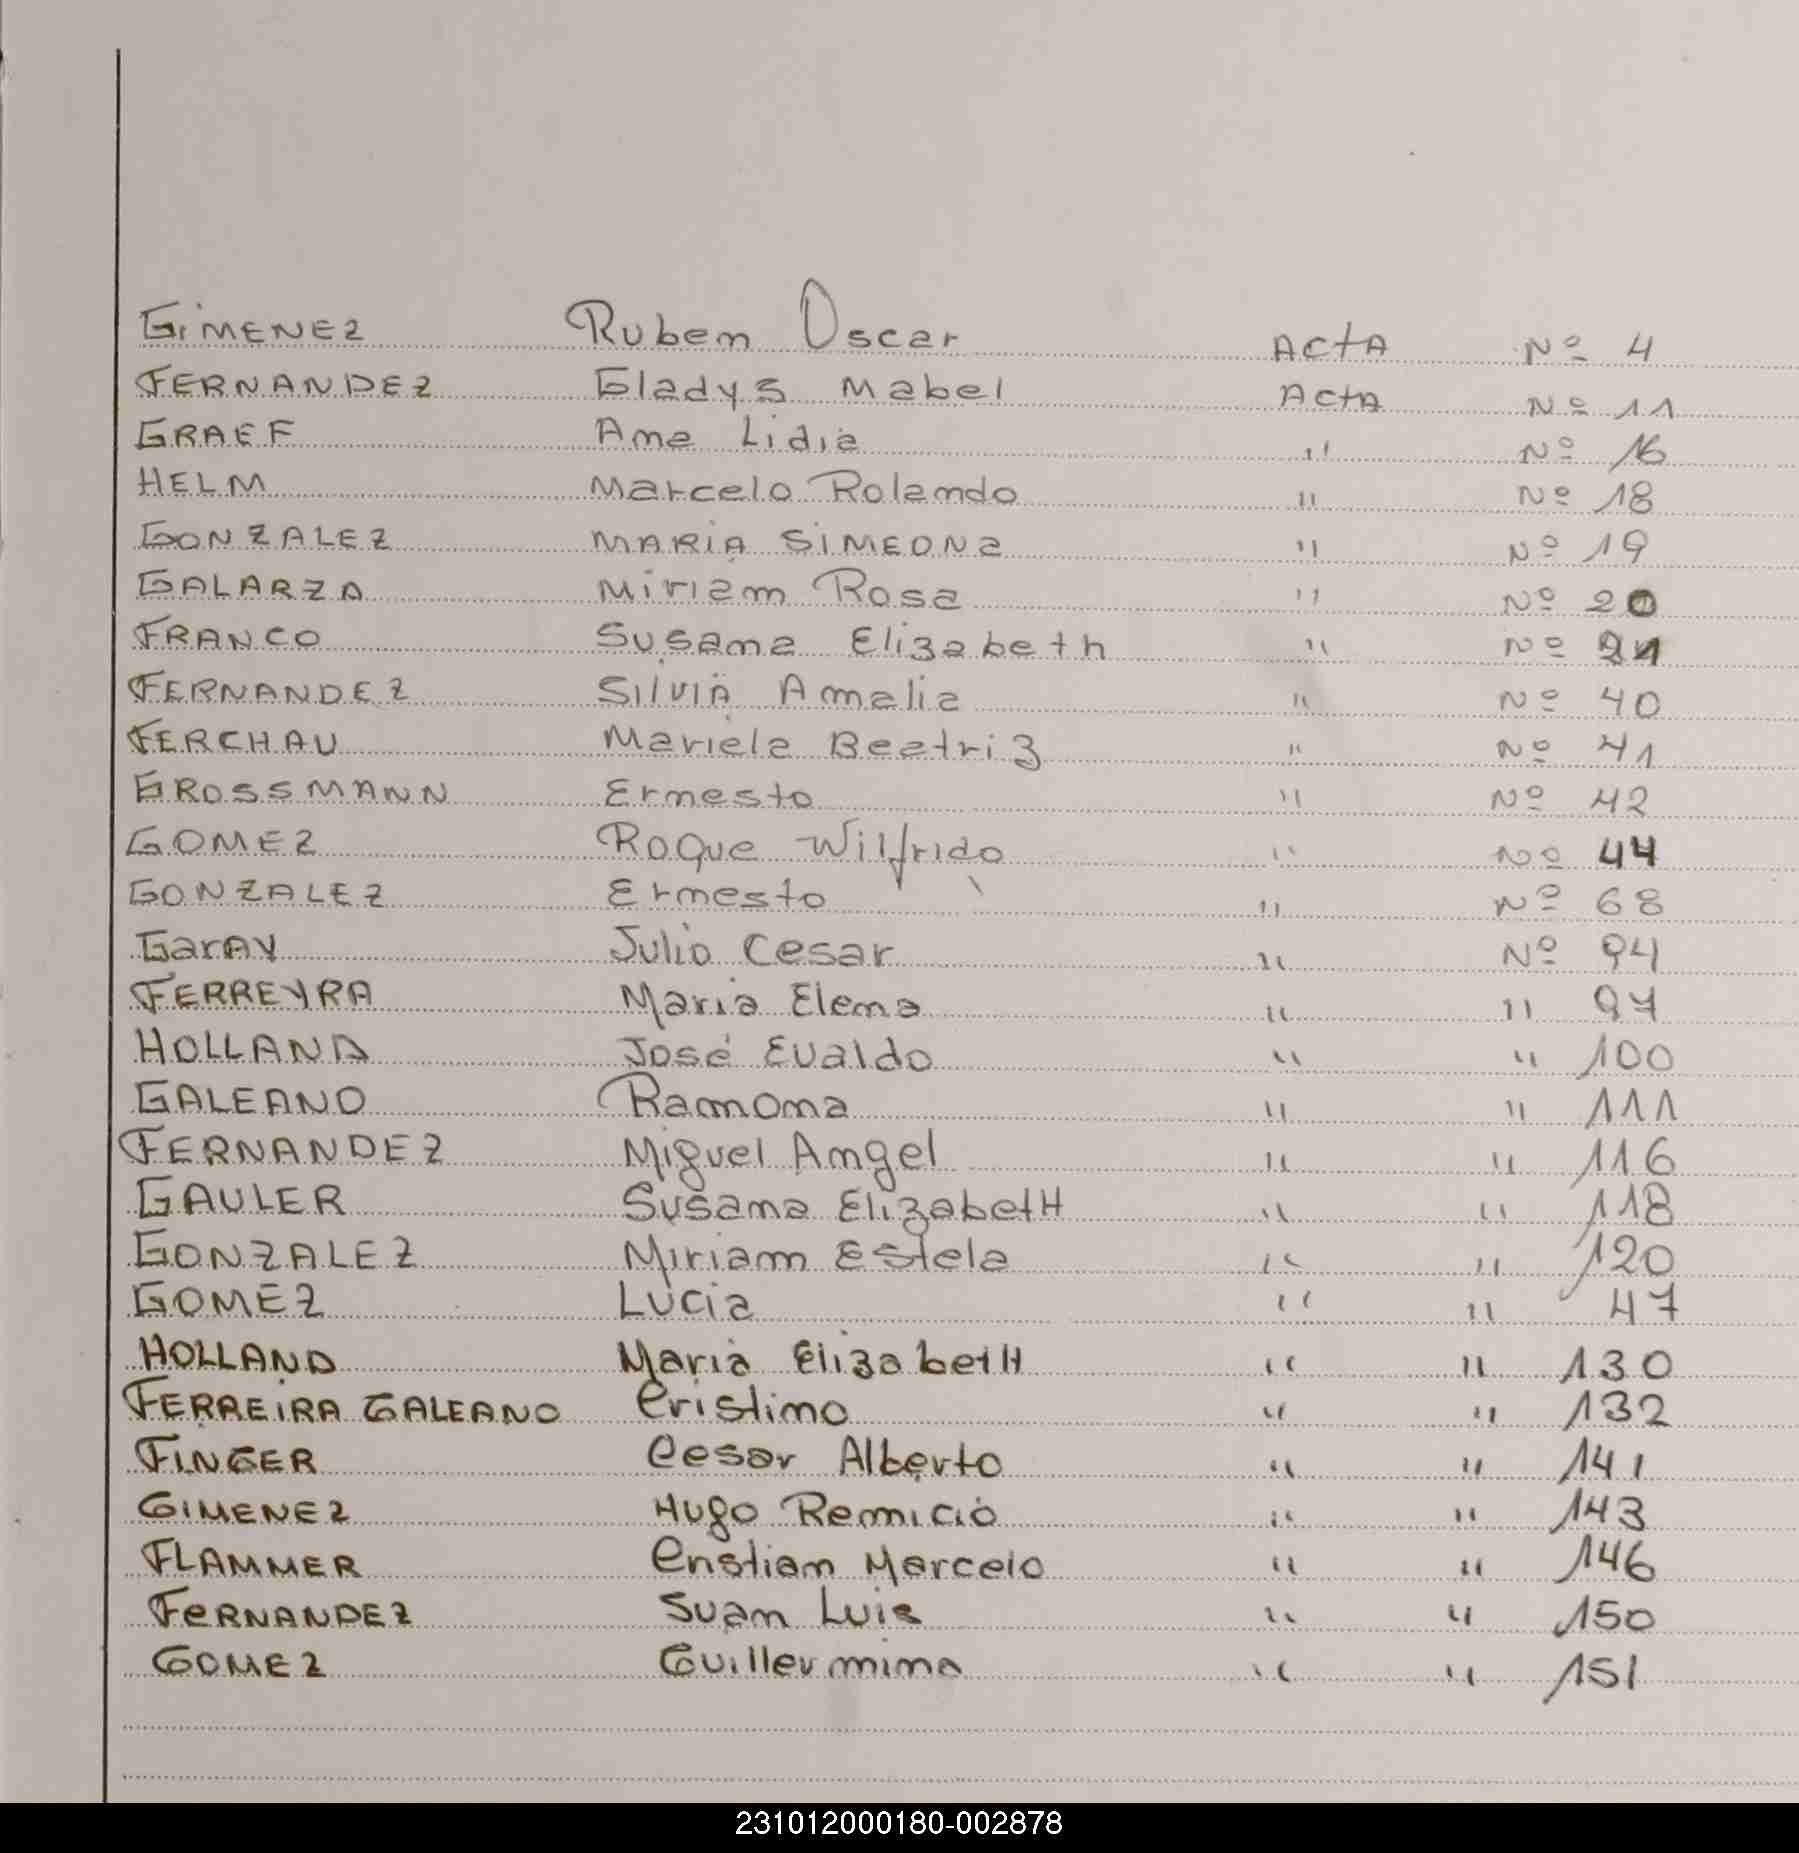 GIMENEZ Ruben Oscar ACTA Nº 4
FERNANDEZ Gladys Mabel ACTA Nº 11
GRAEF Ana Lidia " Nº 16
HELM Marcelo Rolando " Nº 18
GONZALEZ MARIA SIMEONa " Nº 19
GALARZA Miriam Rosa " Nº 20
FRANCO Susana Elizabeth " Nº
FERNANDEZ Silvia Amalia " Nº 40
FERCHAU Mariela Beatriz " Nº 41
GROSSMANN Ernesto " Nº 42
GOMEZ Roque Wilfrido " Nº 44
GONZALEZ Ernesto " Nº 68
GarAy Julio Cesar " Nº 94
FERREYRA Maria Elena " " 97
HOLLAND José Evaldo " " 100
GALEANO Ramona " " 111
FERNANDEZ Miguel Angel " " 116
GAULER Susana ElizabetH " " 118
GONZALEZ Miriam Estela " " 120
GOMEZ Lucia " " 47
HOLLAND Maria ElizabetH " " 130
FERREIRA GALEANO Cristino " " 132
FINGER Cesar Alberto " " 141
GIMENEZ Hugo Remicio " " 143
FLAMMER Cristian Marcelo " " 146
FERNANDEZ Juan Luis " " 150
GOMEZ Guillermina " " 151
231012000180-002878